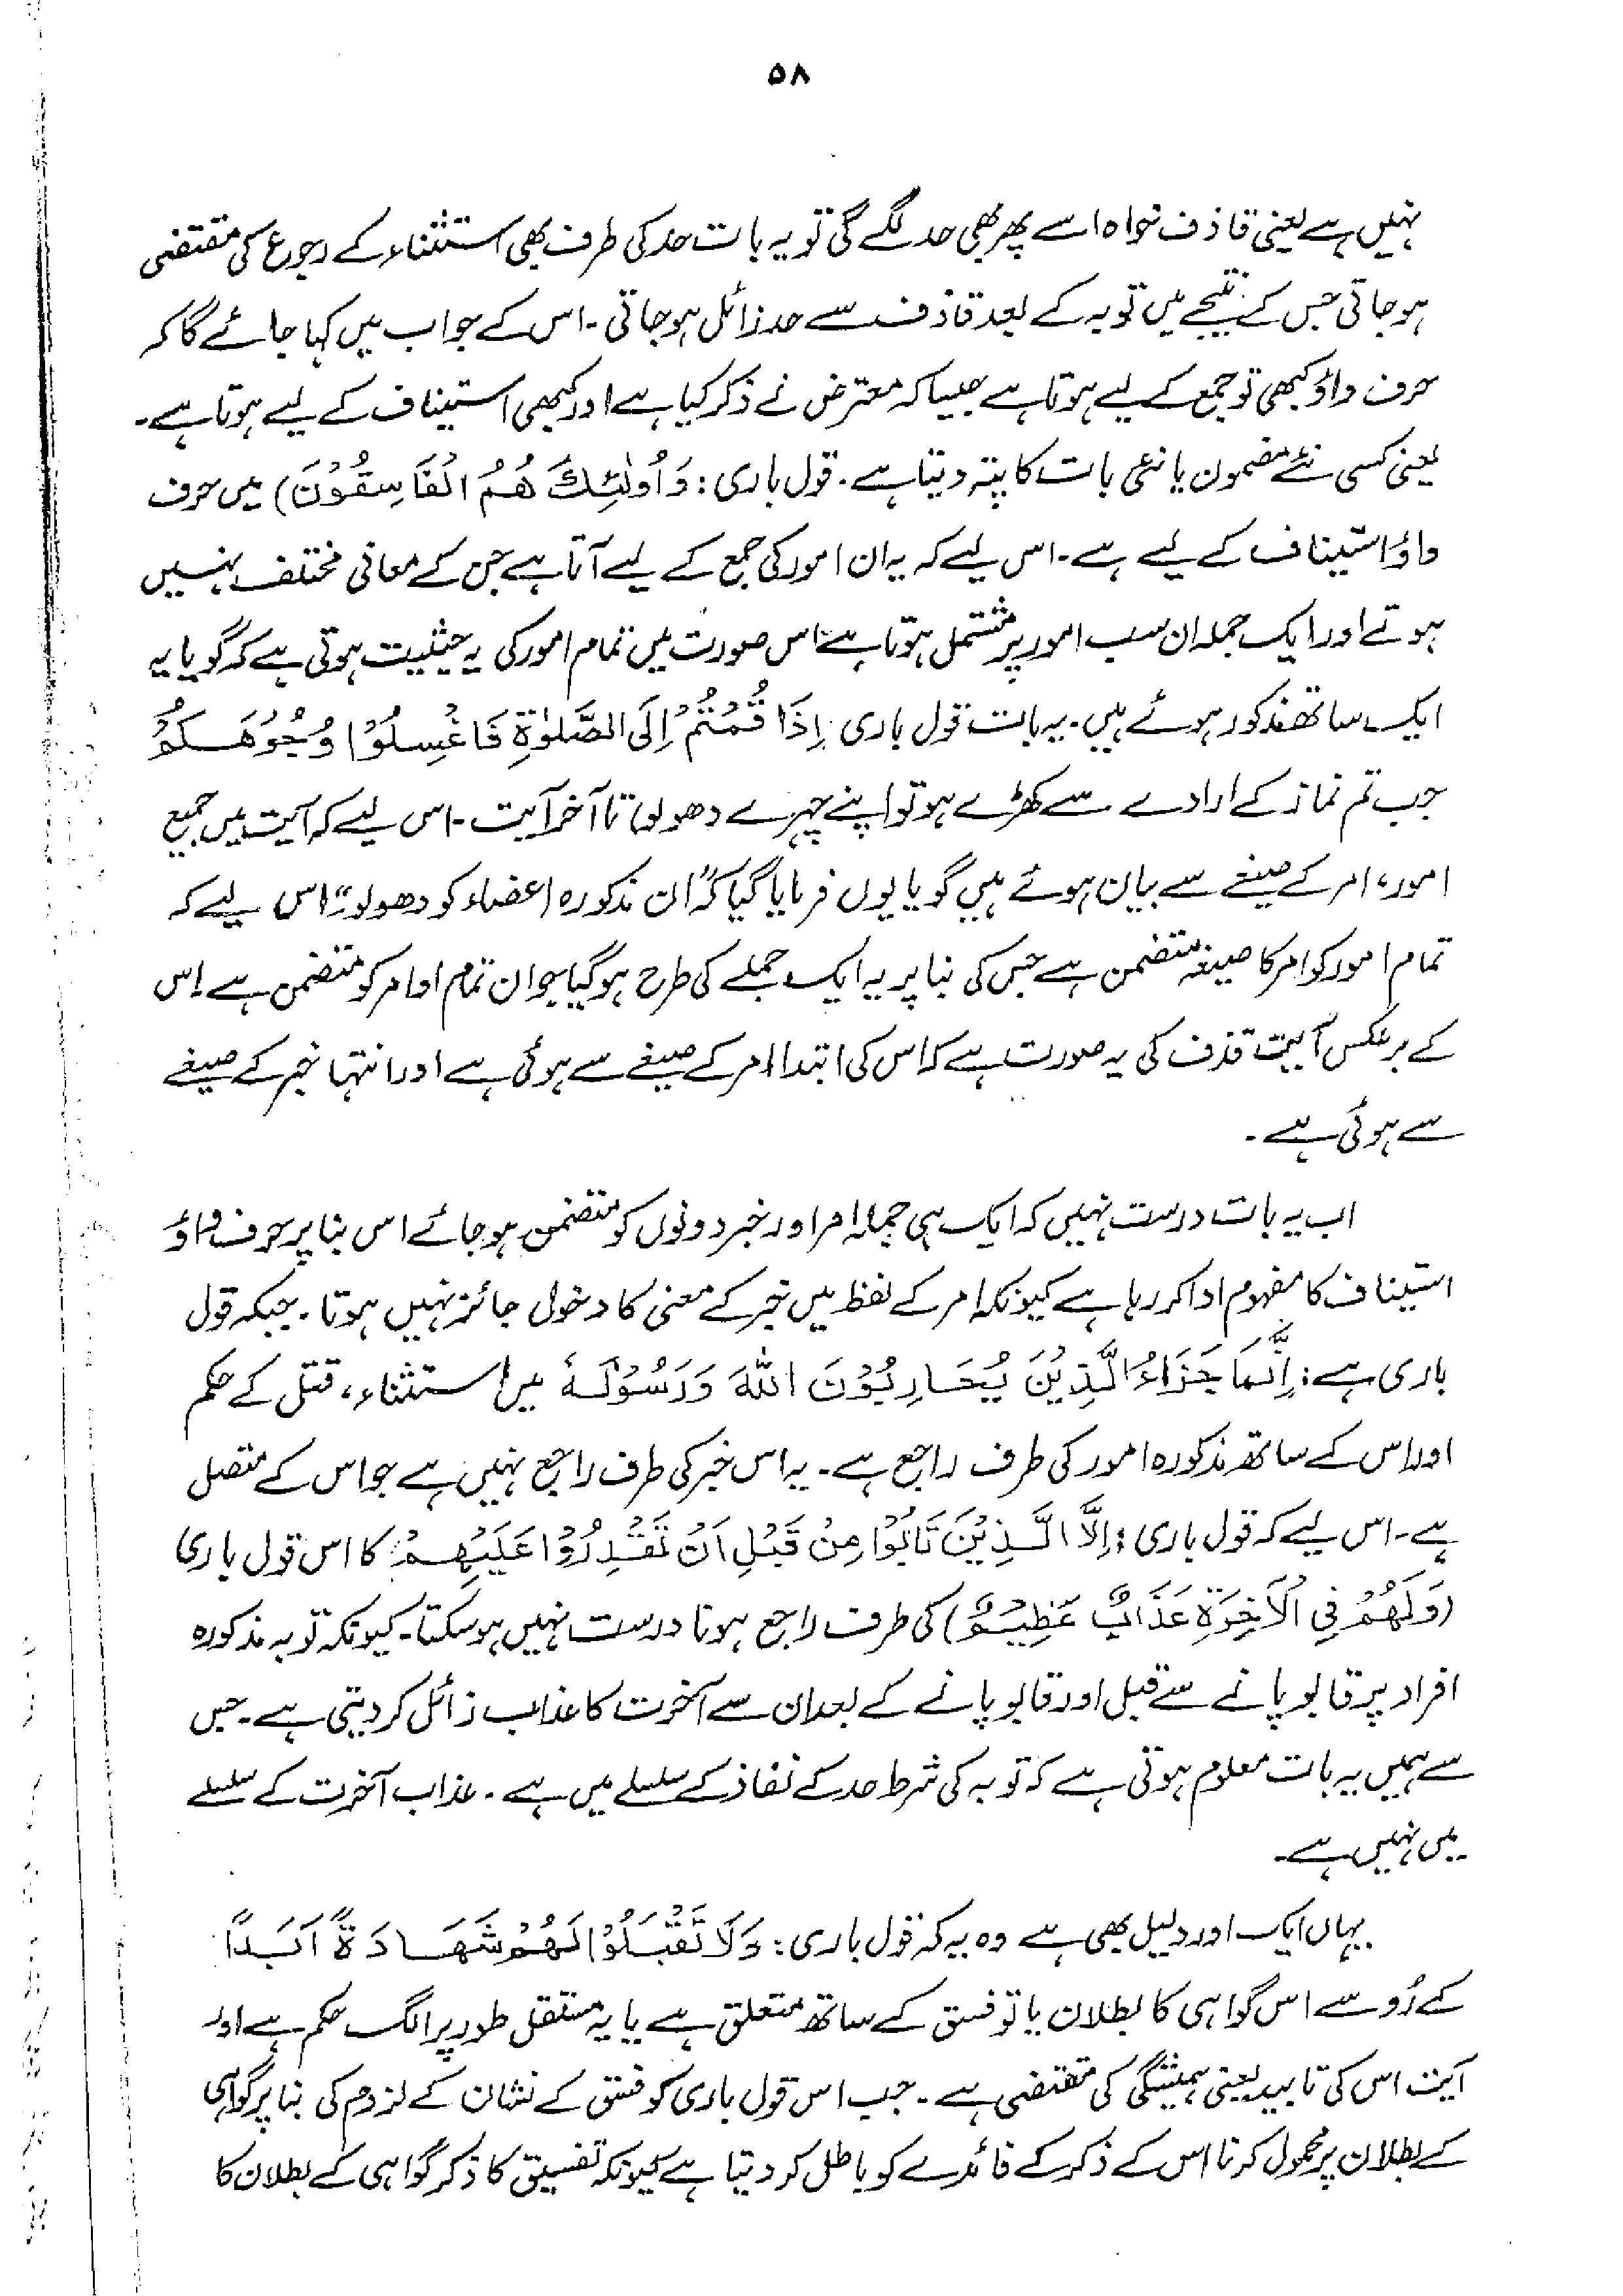 ۵۸
نہیں ہے یعنی قاذف خواہ اسے پھر بھی حد لگے گی تو یہ بات حد کی طرف بھی استثناء کے رجوع کی مقتضی
ہو جاتی جس کے نتیجے میں توبہ کے بعد قاذف سے حد زائل ہو جاتی ۔ اس کے جواب میں کہا جائے گا کہ
حرف واؤ کبھی تو جمع کے لیے ہوتا ہے جیسا کہ معترض نے ذکر کیا ہے اور کبھی استیناف کے لیے ہوتا ہے ۔
یعنی کسی نئے مضمون یا نئی بات کا پتہ دیتا ہے ۔ قول باری : وَاُولٰئِكَ هُمُ الْفَاسِقُوْنَ) میں حرف
واؤ استیناف کے لیے ہے ۔ اس لیے کہ یہ ان امور کی جمع کے لیے آتا ہے جن کے معانی مختلف نہیں
ہوتے اور ایک جملہ ان سب امور پر مشتمل ہوتا ہے اس صورت میں تمام امور کی یہ حیثیت ہوتی ہے کہ گویا یہ
ایک ساتھ مذکور ہوئے ہیں ۔ یہ بات قول باری : اِذَا قُمْتُمْ اِلَی الصَّلٰوةِ فَاغْسِلُوْا وُجُوْهَكُمْ
جب تم نماز کے ارادے سے کھڑے ہو تو اپنے چہرے دھولو) تا آخر آیت ۔ اس لیے کہ آیت میں جمیع
امور، امر کے صیغے سے بیان ہوئے ہیں گویا یوں فرمایا گیا کہ "ان مذکورہ اعضاء کو دھولو" اس لیے کہ
تمام امور کو امر کا صیغہ متضمن ہے جس کی بنا پر یہ ایک جملے کی طرح ہوگیا جو ان تمام اوامر کو متضمن ہے اس
کے برعکس آیت قذف کی یہ صورت ہے کہ اس کی ابتدا امر کے صیغے سے ہوئی ہے اور انتہا خبر کے صیغے
سے ہوئی ہے ۔
اب یہ بات درست نہیں کہ ایک ہی جملہ امر اور خبر دونوں کو متضمن ہو جائے اس بنا پر حرف واؤ
استیناف کا مفہوم ادا کر رہا ہے کیونکہ امر کے لفظ میں خبر کے معنی کا دخول جائز نہیں ہوتا ۔ جبکہ قول
باری ہے : اِنَّمَا جَزَاءُ الَّذِيْنَ يُحَارِبُوْنَ اللّٰهَ وَرَسُوْلَهٗ میں استثناء، قتل کے حکم
اور اس کے ساتھ مذکورہ امور کی طرف راجع ہے ۔ یہ اس خبر کی طرف راجع نہیں ہے جو اس کے متصل
ہے ۔ اس لیے کہ قول باری : اِلَّا الَّذِيْنَ تَابُوْا مِنْ قَبْلِ اَنْ تَقْدِرُوْا عَلَيْهِمْ کا اس قول باری
(وَلَهُمْ فِي الْاٰخِرَةِ عَذَابٌ عَظِيْمٌ) کی طرف راجع ہونا درست نہیں ہوسکتا ۔ کیونکہ توبہ مذکورہ
افراد پر قابو پانے سے قبل اور قابو پانے کے بعد ان سے آخرت کا عذاب زائل کر دیتی ہے ۔ جس
سے ہمیں یہ بات معلوم ہوتی ہے کہ توبہ کی شرط حد کے نفاذ کے سلسلے میں ہے ۔ عذاب آخرت کے سلسلے
میں نہیں ہے ۔
یہاں ایک اور دلیل بھی ہے وہ یہ کہ قول باری : وَلَا تَقْبَلُوْا لَهُمْ شَهَادَةً اَبَدًا
کے رُو سے اس گواہی کا بطلان یا تو فسق کے ساتھ متعلق ہے یا یہ مستقل طور پر الگ حکم ہے اور
آیت اس کی تابید یعنی ہمیشگی کی مقتضی ہے ۔ جب اس قول باری کو فسق کے نشان کے لزوم کی بنا پر گواہی
کے بطلان پر محمول کرنا اس کے ذکر کے فائدے کو باطل کر دیتا ہے کیونکہ تفسیق کا ذکر گواہی کے بطلان کا